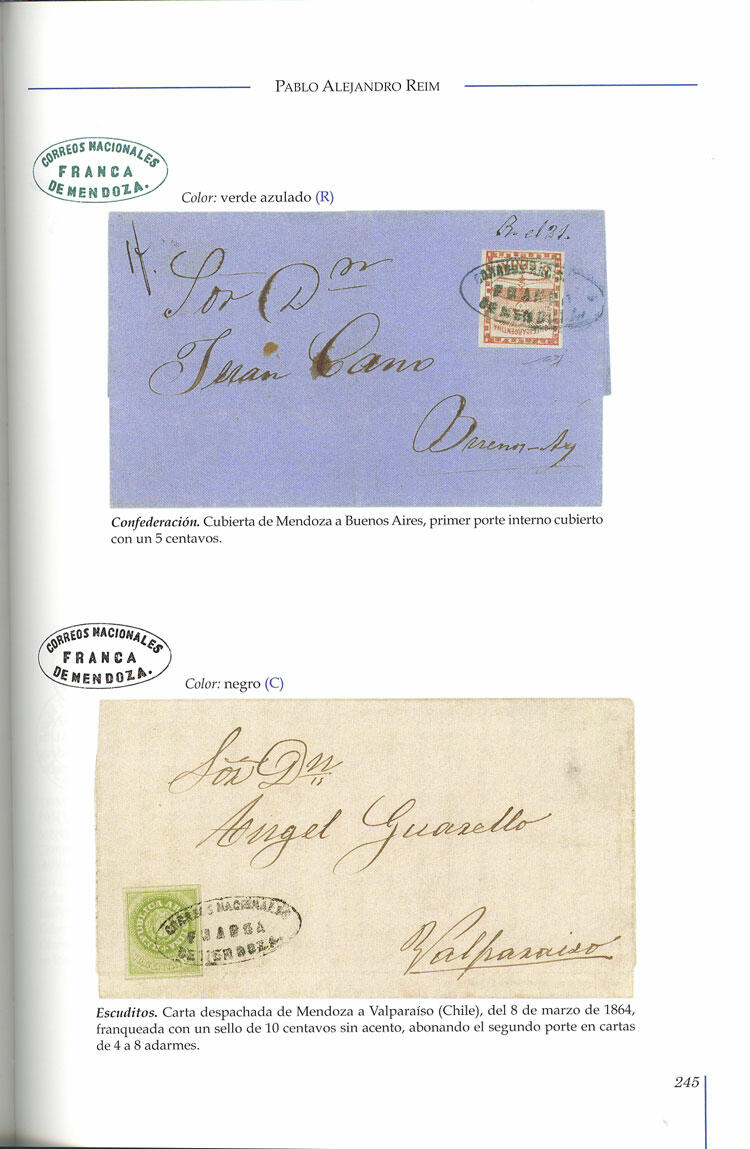 PABLO ALEJANDRO REIM
CORREOS NACIONALES
FRANCA
DE MENDOZA.
Color: verde azulado (R)
R. el 21.
Sor Dn
Juan Cano
Buenos-Ay
CORREOS NACIONALES
FRANCA
DE MENDOZA.
ARGENTINA
Confederación. Cubierta de Mendoza a Buenos Aires, primer porte interno cubierto
con un 5 centavos.
CORREOS NACIONALES
FRANCA
DE MENDOZA.
Color: negro (C)
Sor Dn
Angel Guarello
Valparaiso
CORREOS NACIONALES
FRANCA
DE MENDOZA.
Escuditos. Carta despachada de Mendoza a Valparaíso (Chile), del 8 de marzo de 1864,
franqueada con un sello de 10 centavos sin acento, abonando el segundo porte en cartas
de 4 a 8 adarmes.
245